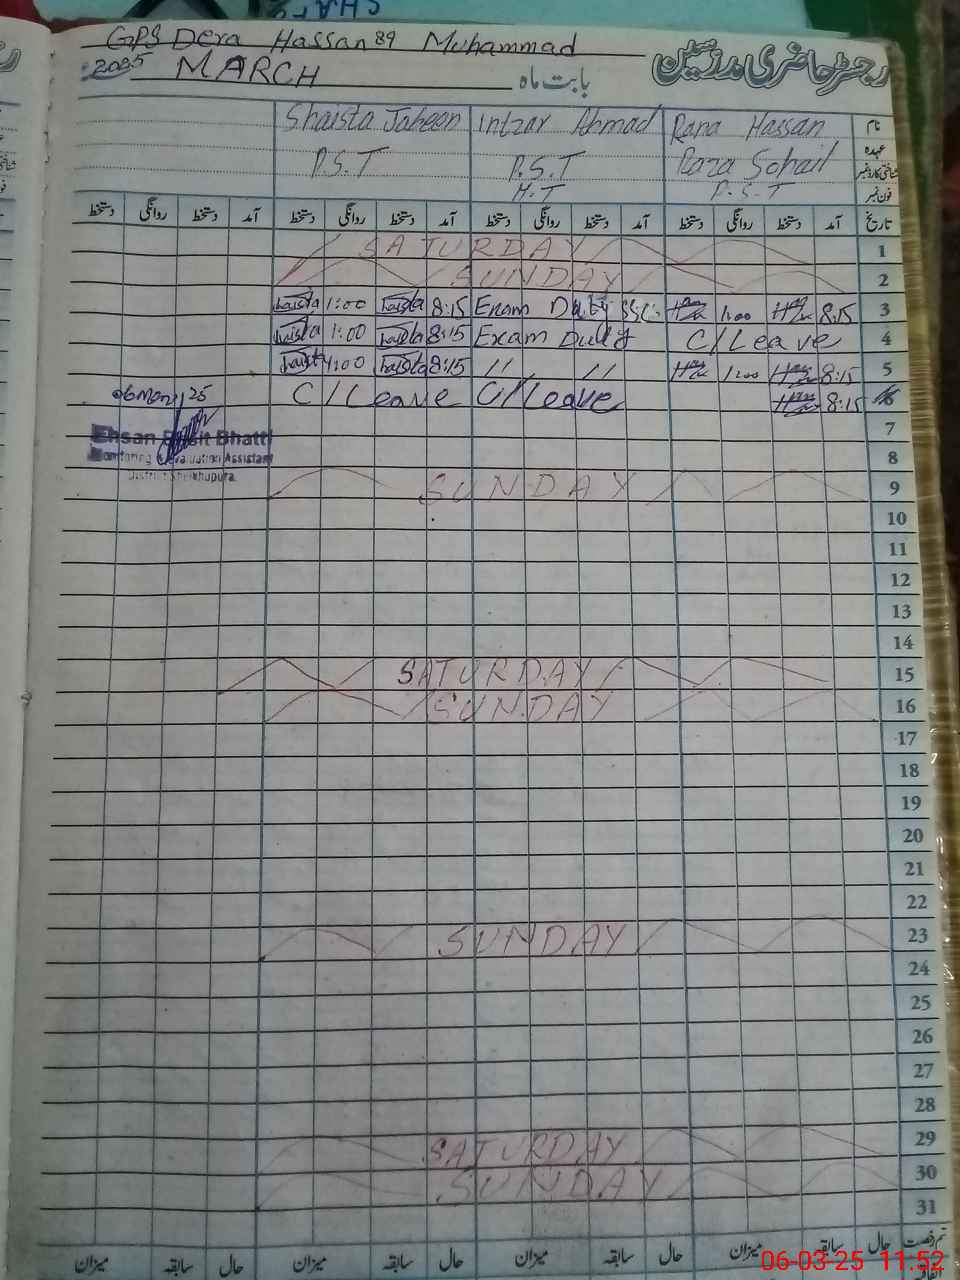 GPS Dera Hassan 89 Muhammad
رجسٹر حاضری مدرسین
2025 MARCH بابت ماہ
Shaista Jabeen Intzar Ahmad Rana Hassan نام
P.S.T P.S.T Raza Sohail عہدہ
شناختی کارڈ نمبر
H.T P.S.T فون نمبر
تاریخ آمد دستخط روانگی دستخط آمد دستخط روانگی دستخط آمد دستخط روانگی دستخط آمد دستخط روانگی دستخط
SATURDAY 1
SUNDAY 2
1:00 8:15 Exam Duty SSC 1:00 8:15 3
1:00 8:15 Exam Duty C/Leave 4
1:00 8:15 〃 〃 1:00 8:15 5
06 Mar 25 C/Leave C/Leave 8:15 6
7
Ehsan Basit Bhatti
Monitoring & Evaluation Assistant 8
District Sheikhupura
SUNDAY 9
10
11
12
13
14
SATURDAY 15
SUNDAY 16
17
18
19
20
21
22
SUNDAY 23
24
25
26
27
28
SATURDAY 29
SUNDAY 30
31
حال سابقہ میزان حال سابقہ میزان حال سابقہ میزان حال سابقہ میزان
06-03-25 11:52